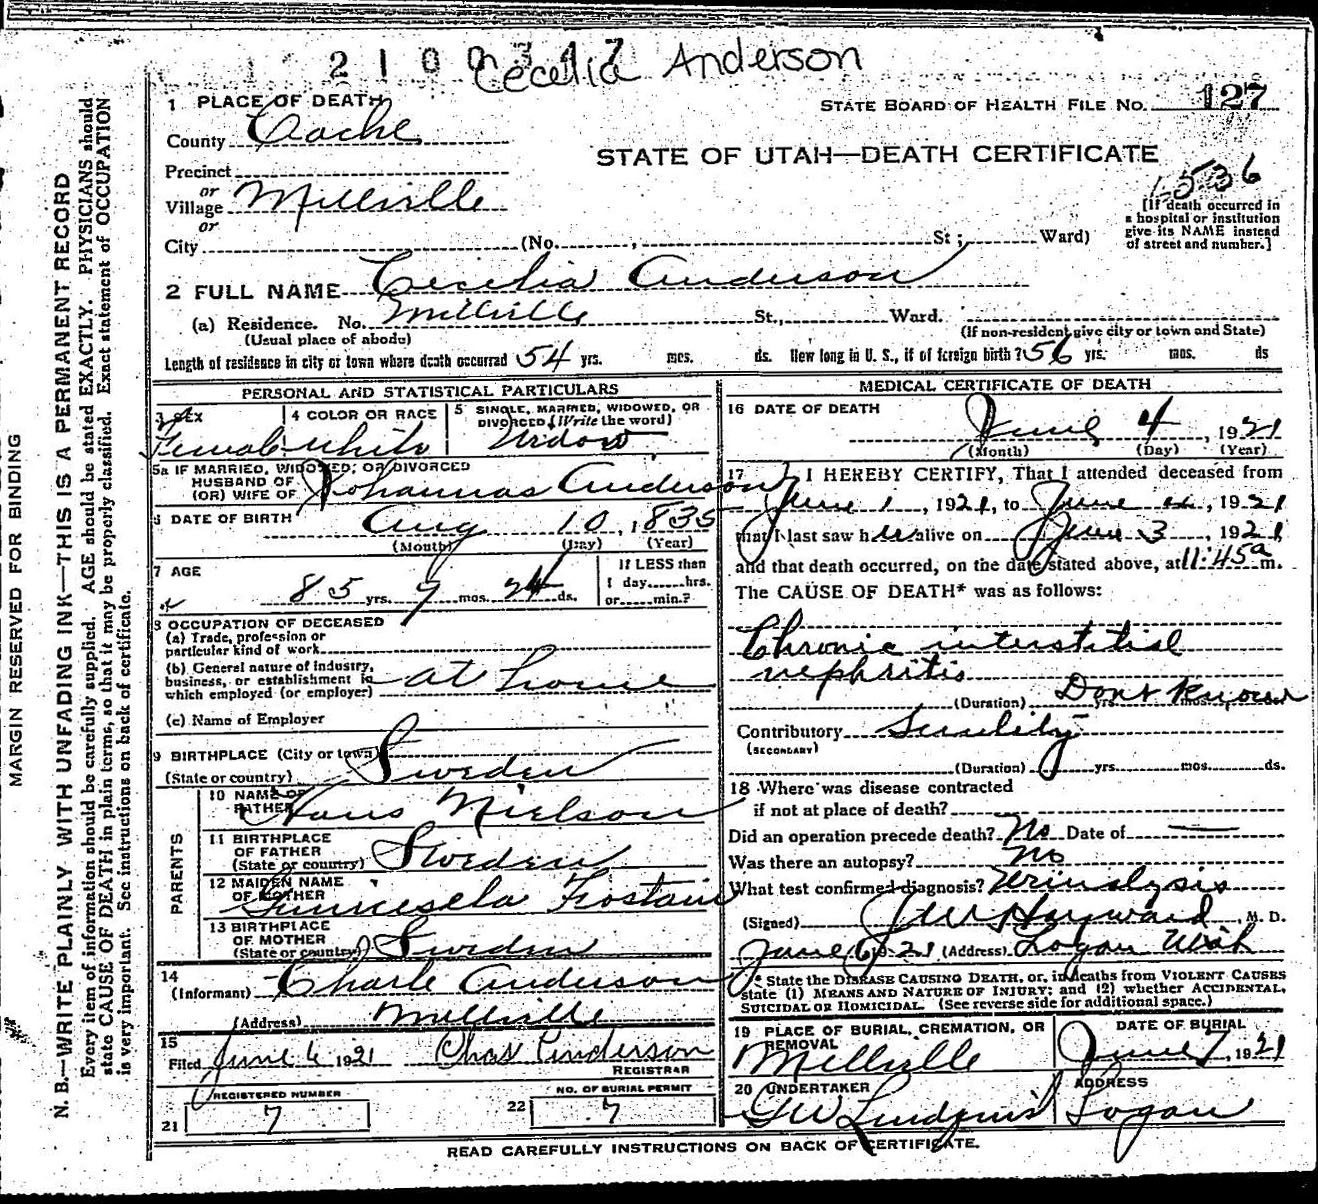 2100347
Cecelia Anderson
1 PLACE OF DEATH
County Cache
STATE BOARD OF HEALTH FILE No. 127
STATE OF UTAH—DEATH CERTIFICATE
Precinct
or
Village Millville
or
City (No. , St; Ward)
1536
[If death occurred in
a hospital or institution
give its NAME instead
of street and number.]
2 FULL NAME Cecelia Anderson
(a) Residence. No. Millville St., Ward.
(Usual place of abode)
(If non-resident give city or town and State)
Length of residence in city or town where death occurred 54 yrs. mos. ds. How long in U. S., if of foreign birth? 56 yrs. mos. ds
PERSONAL AND STATISTICAL PARTICULARS
3 Sex Female
4 COLOR OR RACE White
5 SINGLE, MARRIED, WIDOWED, OR
DIVORCED (Write the word)
Widow
5a IF MARRIED, WIDOWED, OR DIVORCED
HUSBAND OF
(OR) WIFE OF Johannas Anderson
6 DATE OF BIRTH Aug 10, 1835
(Month) (Day) (Year)
7 AGE
85 yrs. 9 mos. 24 ds.
If LESS than
1 day......hrs.
or......min.?
8 OCCUPATION OF DECEASED
(a) Trade, profession or
particular kind of work
(b) General nature of industry,
business, or establishment in
which employed (or employer) at home
(c) Name of Employer
9 BIRTHPLACE (City or town)
(State or country) Sweden
PARENTS
10 NAME OF
FATHER Hans Nielson
11 BIRTHPLACE
OF FATHER
(State or country) Sweden
12 MAIDEN NAME
OF MOTHER
13 BIRTHPLACE
OF MOTHER
(State or country) Sweden
14
(Informant) Charle Anderson
(Address) Millville
15
Filed June 6 1921 Chas Anderson
REGISTRAR
REGISTERED NUMBER
21 7
NO. OF BURIAL PERMIT
22 7
MEDICAL CERTIFICATE OF DEATH
16 DATE OF DEATH
June 4, 1921
(Month) (Day) (Year)
17 I HEREBY CERTIFY, That I attended deceased from
June 1, 1921, to June 4, 1921
that I last saw her alive on June 3, 1921
and that death occurred, on the date stated above, at 11:45a m.
The CAUSE OF DEATH* was as follows:
Chronic interstitial
nephritis
(Duration) Dont Know yrs. mos. ds.
Contributory Senility
(SECONDARY)
(Duration) yrs. mos. ds.
18 Where was disease contracted
if not at place of death?
Did an operation precede death? No Date of —
Was there an autopsy? No
What test confirmed diagnosis? Urinalysis
(Signed) J W Hayward, M. D.
June 6 1921 (Address) Logan Utah
* State the DISEASE CAUSING DEATH, or, in deaths from VIOLENT CAUSES
state (1) MEANS AND NATURE OF INJURY; and (2) whether ACCIDENTAL,
SUICIDAL OR HOMICIDAL. (See reverse side for additional space.)
19 PLACE OF BURIAL, CREMATION, OR
REMOVAL
Millville
DATE OF BURIAL
June 7, 1921
20 UNDERTAKER
G W Lindquist
ADDRESS
Logan
READ CAREFULLY INSTRUCTIONS ON BACK OF CERTIFICATE.
MARGIN RESERVED FOR BINDING
N. B.—WRITE PLAINLY WITH UNFADING INK—THIS IS A PERMANENT RECORD
Every item of information should be carefully supplied. AGE should be stated EXACTLY. PHYSICIANS should
state CAUSE OF DEATH in plain terms, so that it may be properly classified. Exact statement of OCCUPATION
is very important. See instructions on back of certificate.